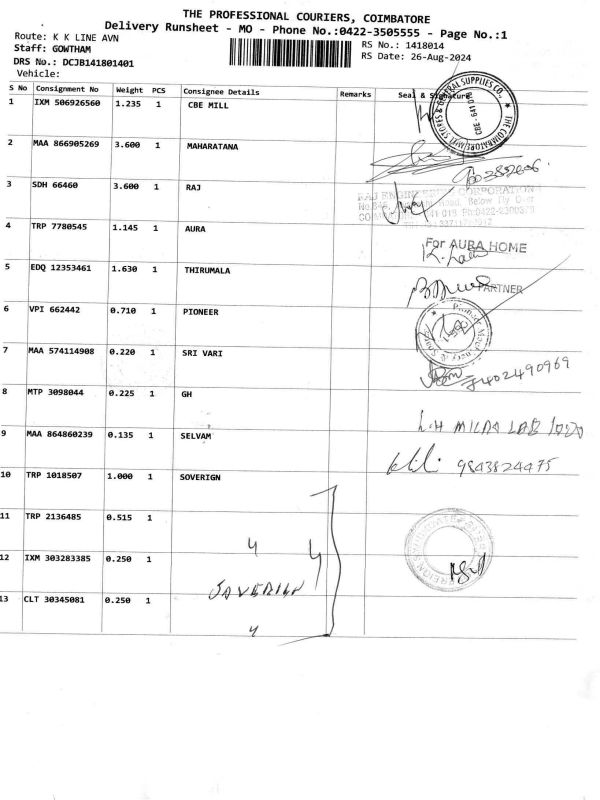 THE PROFESSIONAL COURIERS, COIMBATORE
Delivery Runsheet - MO - Phone No.:0422-3505555 - Page No.:1
Route: K K LINE AVN
RS No.: 1418014
Staff: GOWTHAM
RS Date: 26-Aug-2024
DRS No.: DCJB141801401
Vehicle:
S No Consignment No Weight PCS Consignee Details Remarks Seal & Signature
1 IXM 506926560 1.235 1 CBE MILL
THE COIMBATORE STORES & GENERAL SUPPLIES CO.
2 MAA 866905269 3.600 1 MAHARATANA
3 SDH 66460 3.600 1 RAJ
RAJ ENGINEERING CORPORATION
4 TRP 7780545 1.145 1 AURA
For AURA HOME
5 EDQ 12353461 1.630 1 THIRUMALA
PARTNER
6 VPI 662442 0.710 1 PIONEER
7 MAA 574114908 0.220 1 SRI VARI
7402490969
8 MTP 3098044 0.225 1 GH
LAB
9 MAA 864860239 0.135 1 SELVAM
9843824475
10 TRP 1018507 1.000 1 SOVERIGN
11 TRP 2136485 0.515 1
12 IXM 303283385 0.250 1
SOVERIGN
13 CLT 30345081 0.250 1